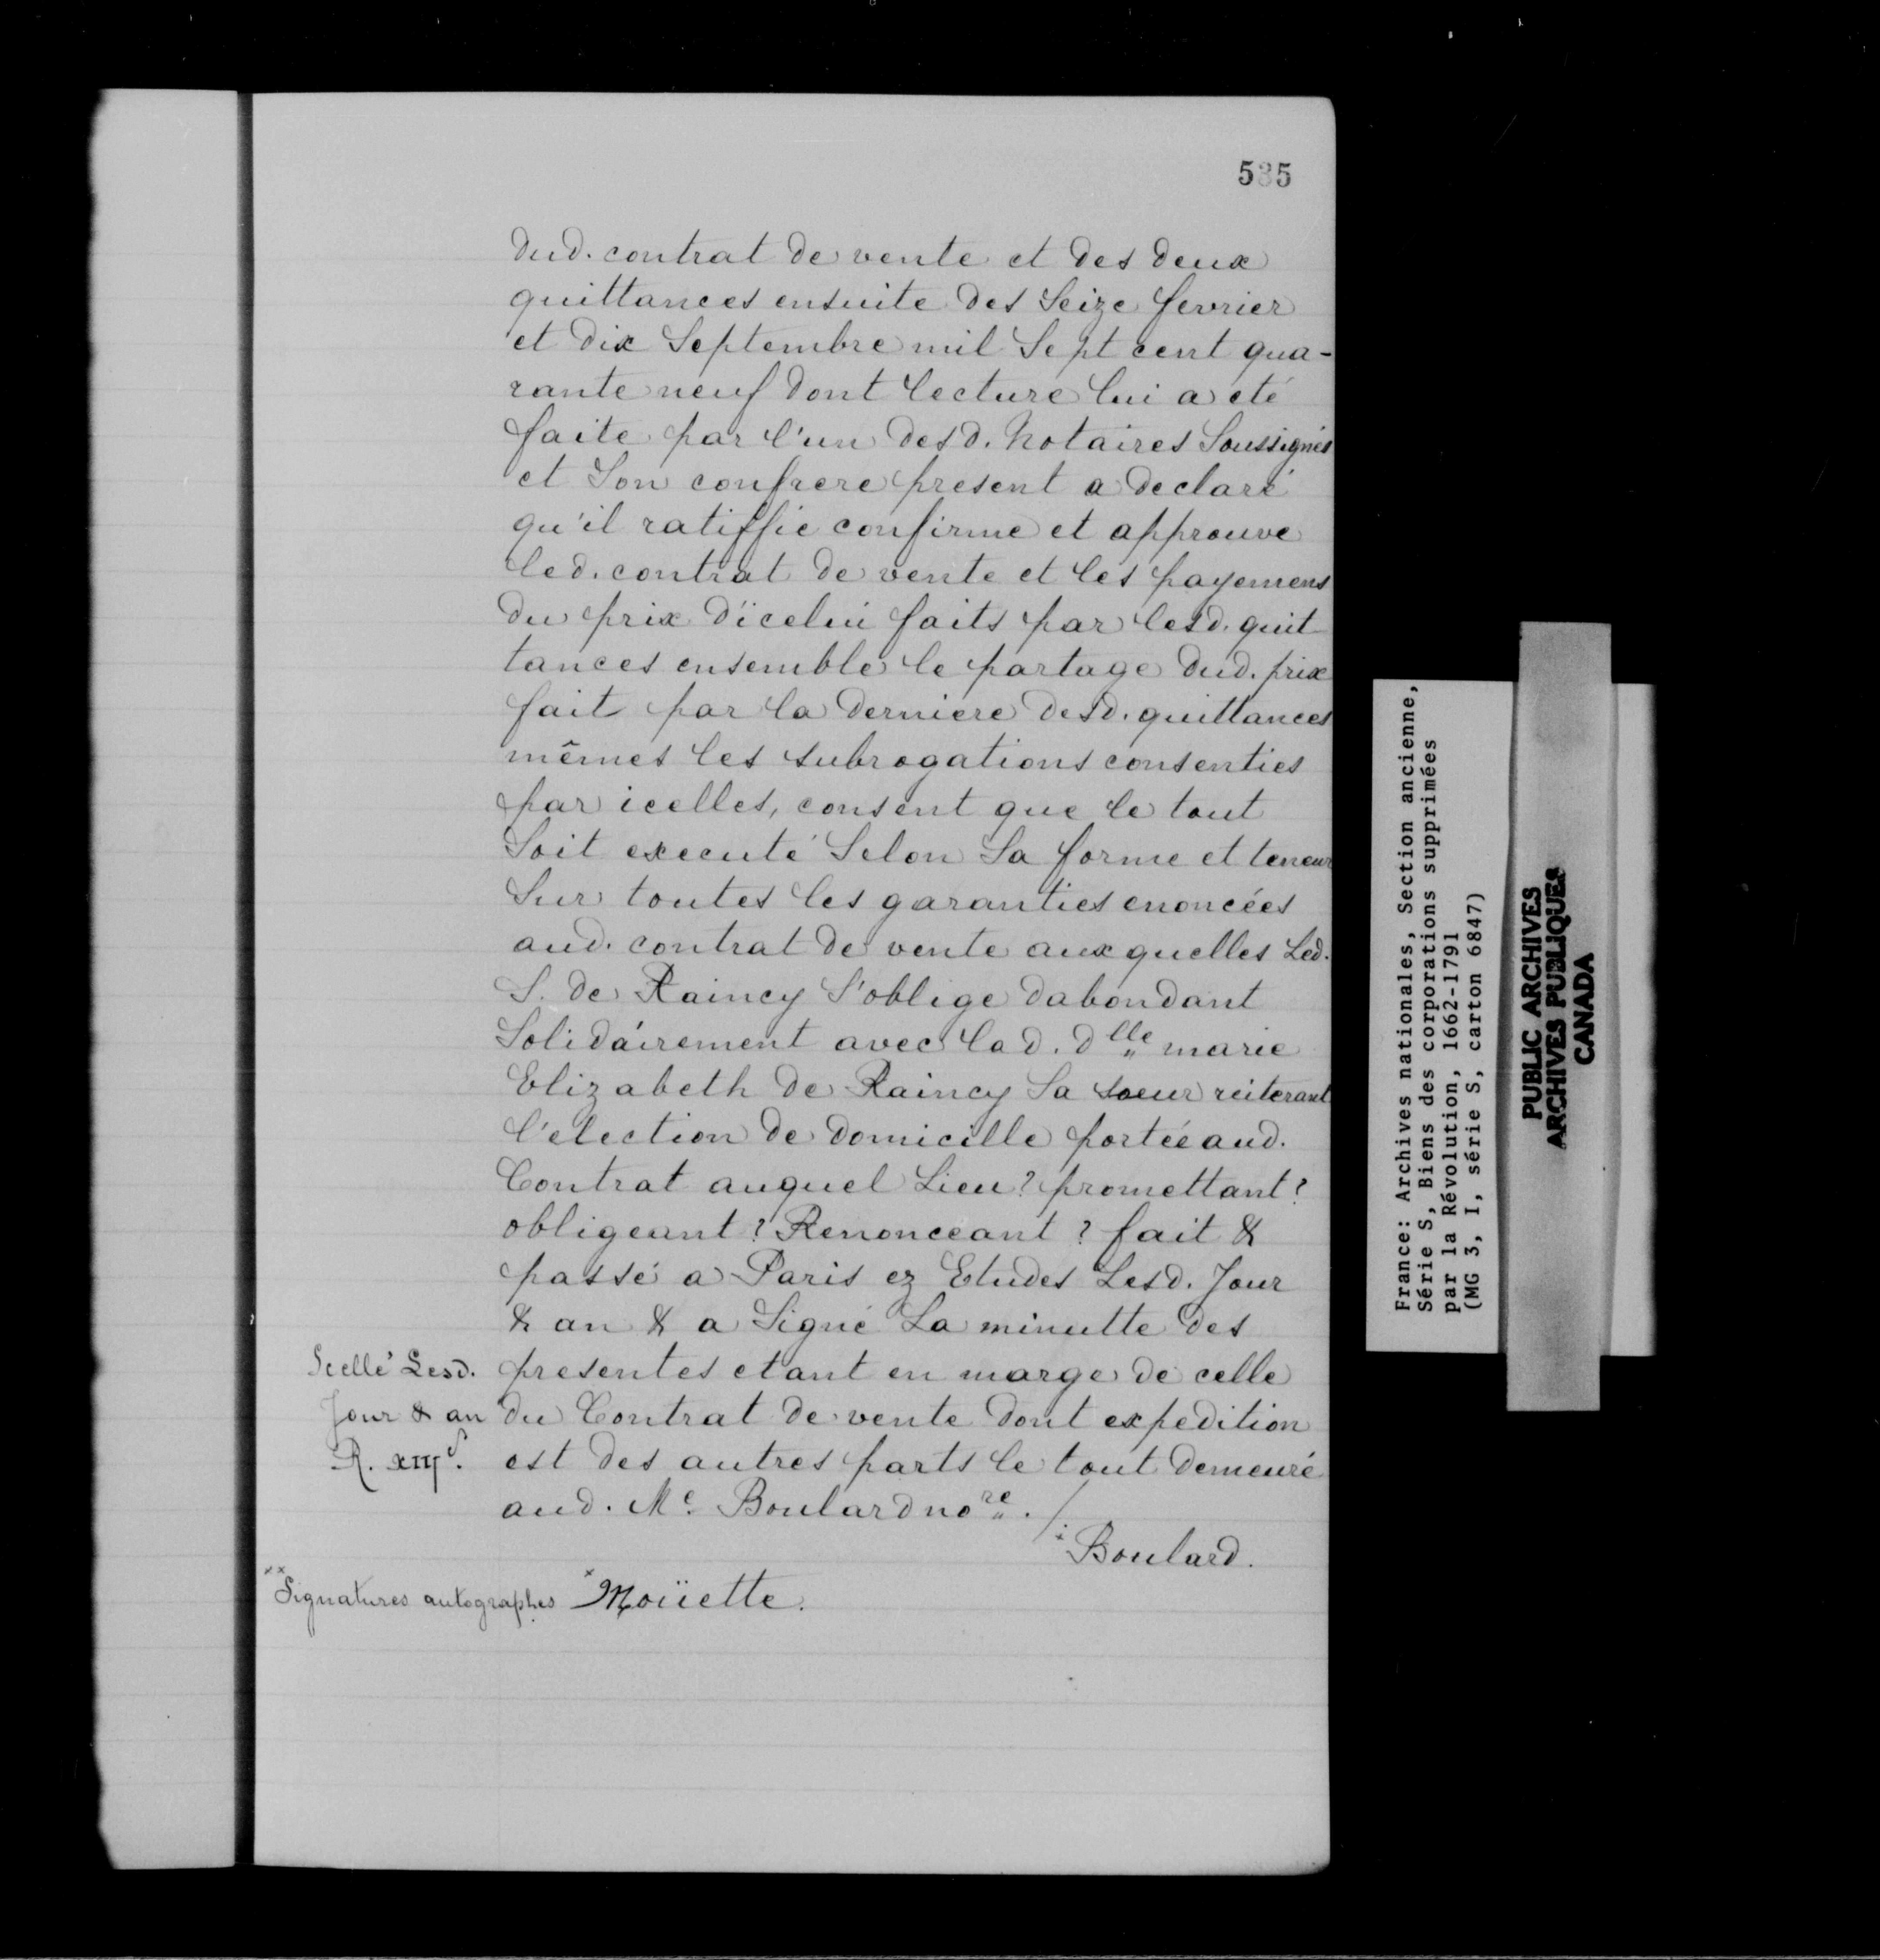 535
dud. contrat de vente et des deux
quittances ensuite des Seize fevrier
et dix Septembre mil Sept cent qua-
rante neuf dont lecture lui a eté
faite par l'un desd. Notaires Soussignés
et Son confrere present a declaré
qu'il ratiffie confirme et approuve
led. contrat de vente et les payemens
du prix d'icelui faits par lesd. quit
tances ensemble le partage dud. prix
fait par la derniere desd. quittances
mêmes les subrogations consenties
par icelles, consent que le tout
Soit executé Selon Sa forme et teneur
Sur toutes les garanties enoncées
aud. contrat de vente aux quelles Led.
S. de Raincy S'oblige dabondant
Solidairement avec lad. dlle marie
Elizabeth de Raincy Sa soeur reiterant
l'election de domicille portée aud.
Contrat auquel Lieu? promettant?
obligeant? Renonceant? fait &
passé a Paris ez Etudes Lesd. Jour
& an & a Signé La minutte des
presentes etant en marge de celle
du Contrat de vente dont expedition
est des autres parts le tout demeuré
aud. Me. Boulard nore. /.
Scellé Lesd.
Jour & an
R. xiijs.
x Boulard.
xx Signatures autographes x Moüette.
France: Archives nationales, Section ancienne,
Série S, Biens des corporations supprimées
par la Révolution, 1662-1791
(MG 3, I, série S, carton 6847)
PUBLIC ARCHIVES
ARCHIVES PUBLIQUES
CANADA